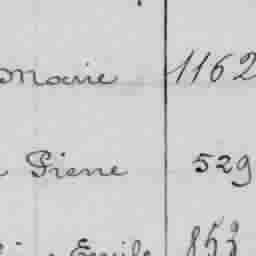 Marie 1162
Pierre 529
Emile 853